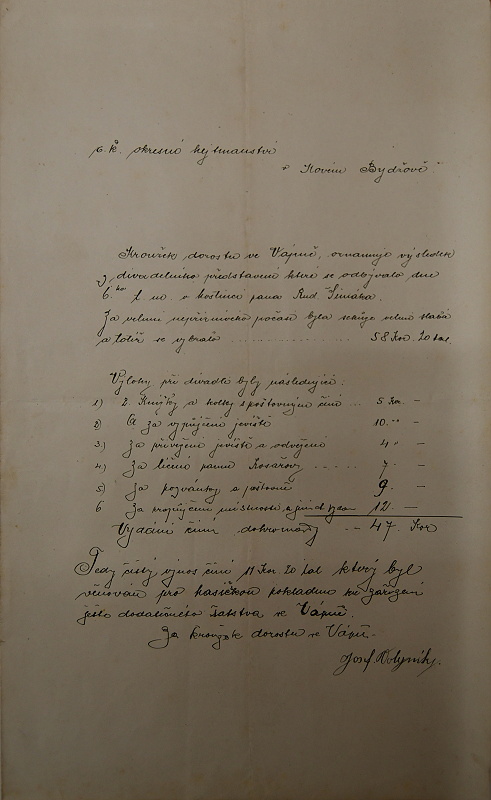 c. k. okresní hejtmanství
v Novém Bydžově.
Kroužek dorostu ve Vápně, oznamuje výsledek
divadelního představení které se odbývalo dne
6. ho t. m. v hostinci pana Rud. Šimáka.
Za velmi nepříznivého počasí byla velmi slabá
a totiž se vybralo .......... 58 Kor. 20 hal.
Výlohy při divadle byly následující:
1) 2 Knížky a kolky s poštovným činí ... 5 Kor. —
2) Za vypůjčení jeviště 10. " —
3.) Za přivezení jeviště a odvezení 4 " —
4.) Za líčení panu 7. —
5) Za pozvánky a poštovné 9. —
6 Za propůjčení místnosti 12. —
Vydání činí dohromady — 47. Kor
Tedy čistý výnos činí 11 Kor. 20 hal který byl
věnován pro hasičskou pokladnu ku zařízení
ještě dodatečného šatstva ve Vápně.
Za kroužek dorostu ve Vápně.
Josef